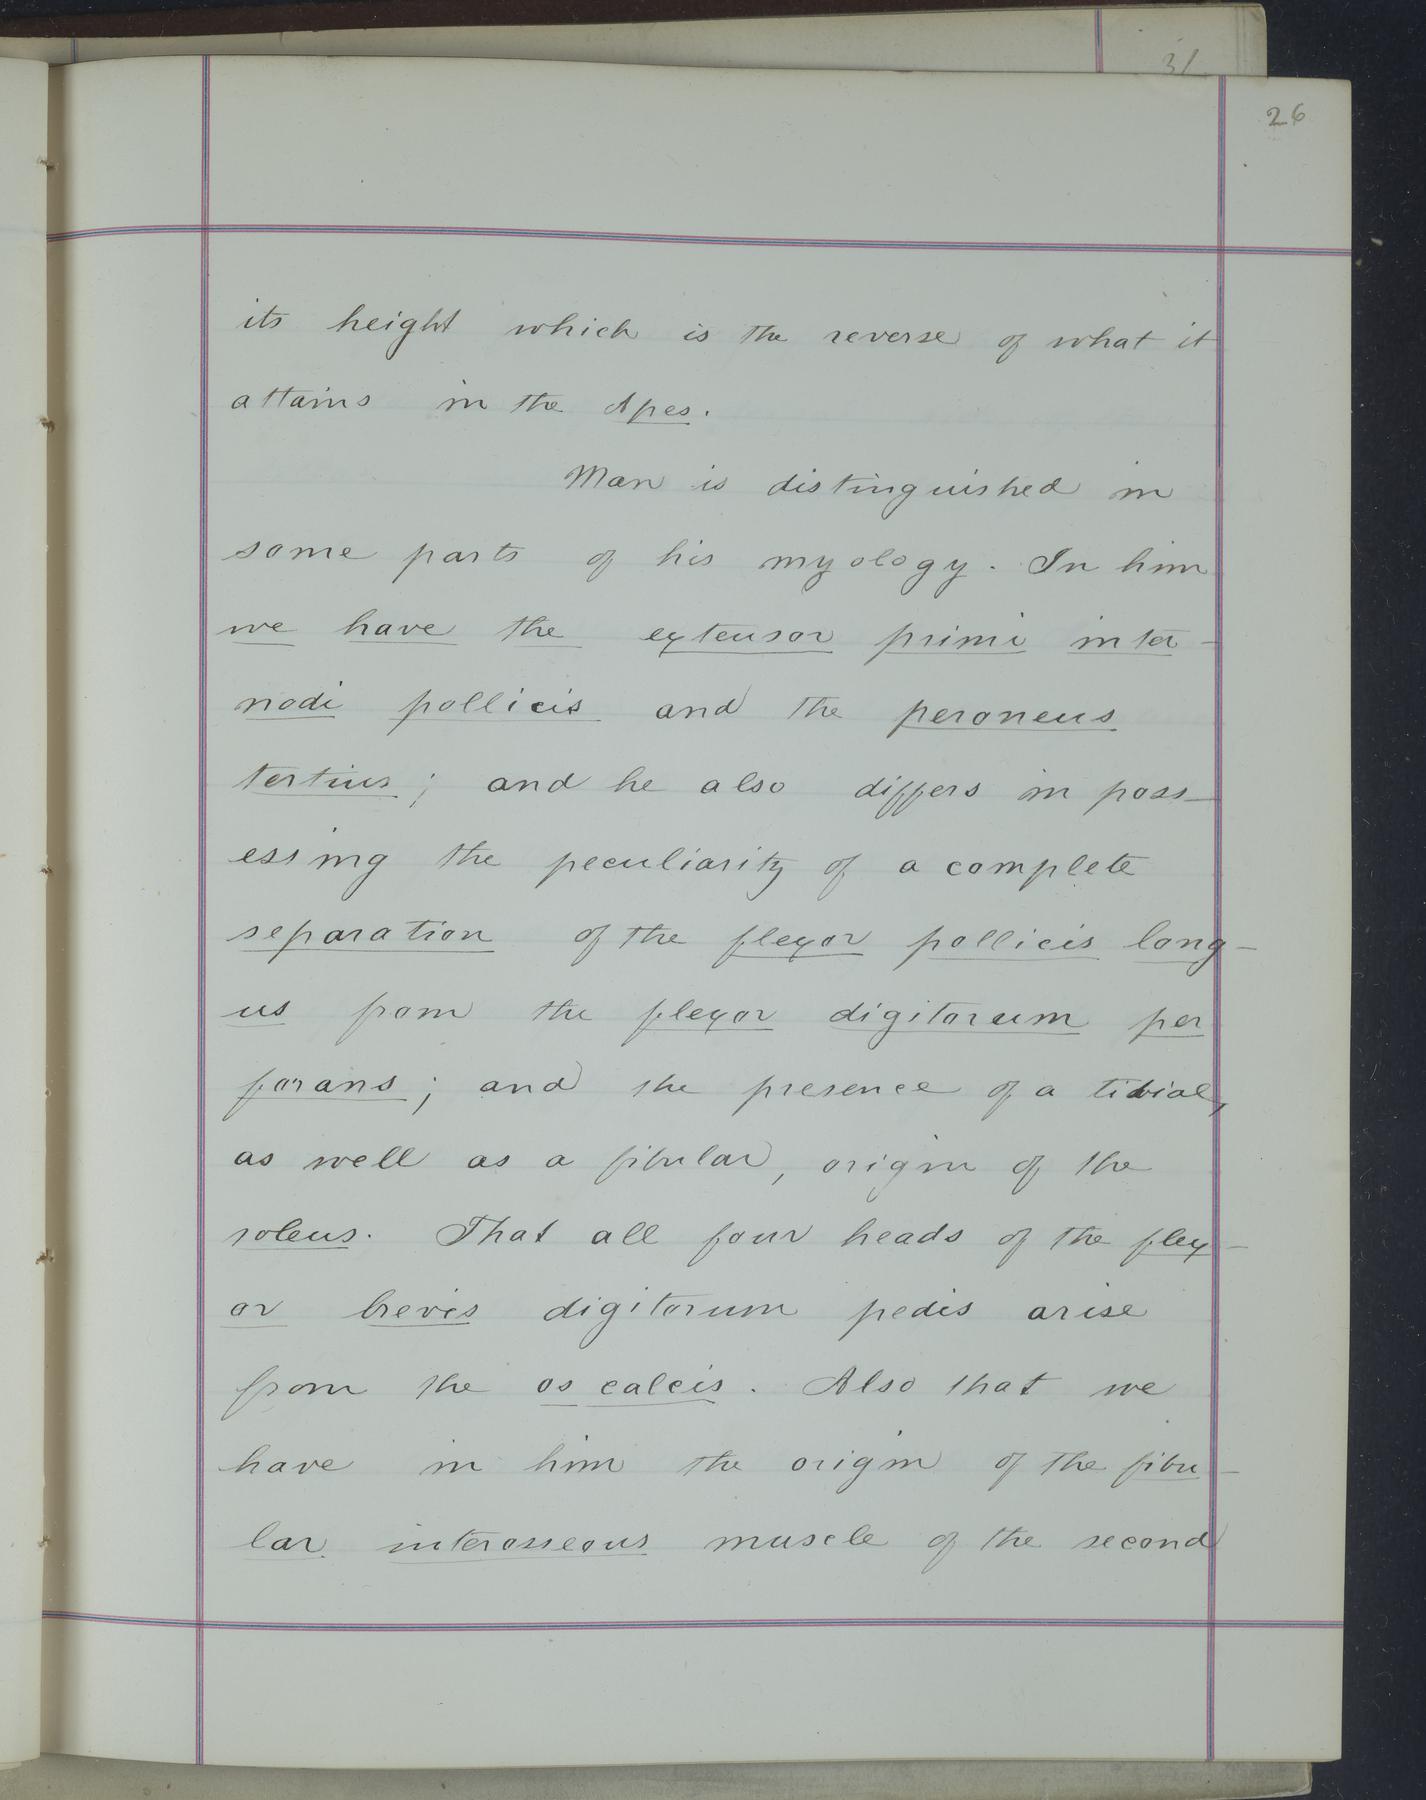 31
26
its height which is the reverse of what it
attains in the Apes.
Man is distinguished in
some parts of his myology. In him
we have the extensor primi inter-
nodi pollicis and the peroneus
tertius; and he also differs in poss-
essing the peculiarity of a complete
separation of the flexor pollicis long-
us from the flexor digitorum per
forans; and the presence of a tibial,
as well as a fibular, origin of the
soleus. That all four heads of the flex-
or brevis digitorum pedis arise
from the os calcis. Also that we
have in him the origin of the fibu-
lar interosseous muscle of the second